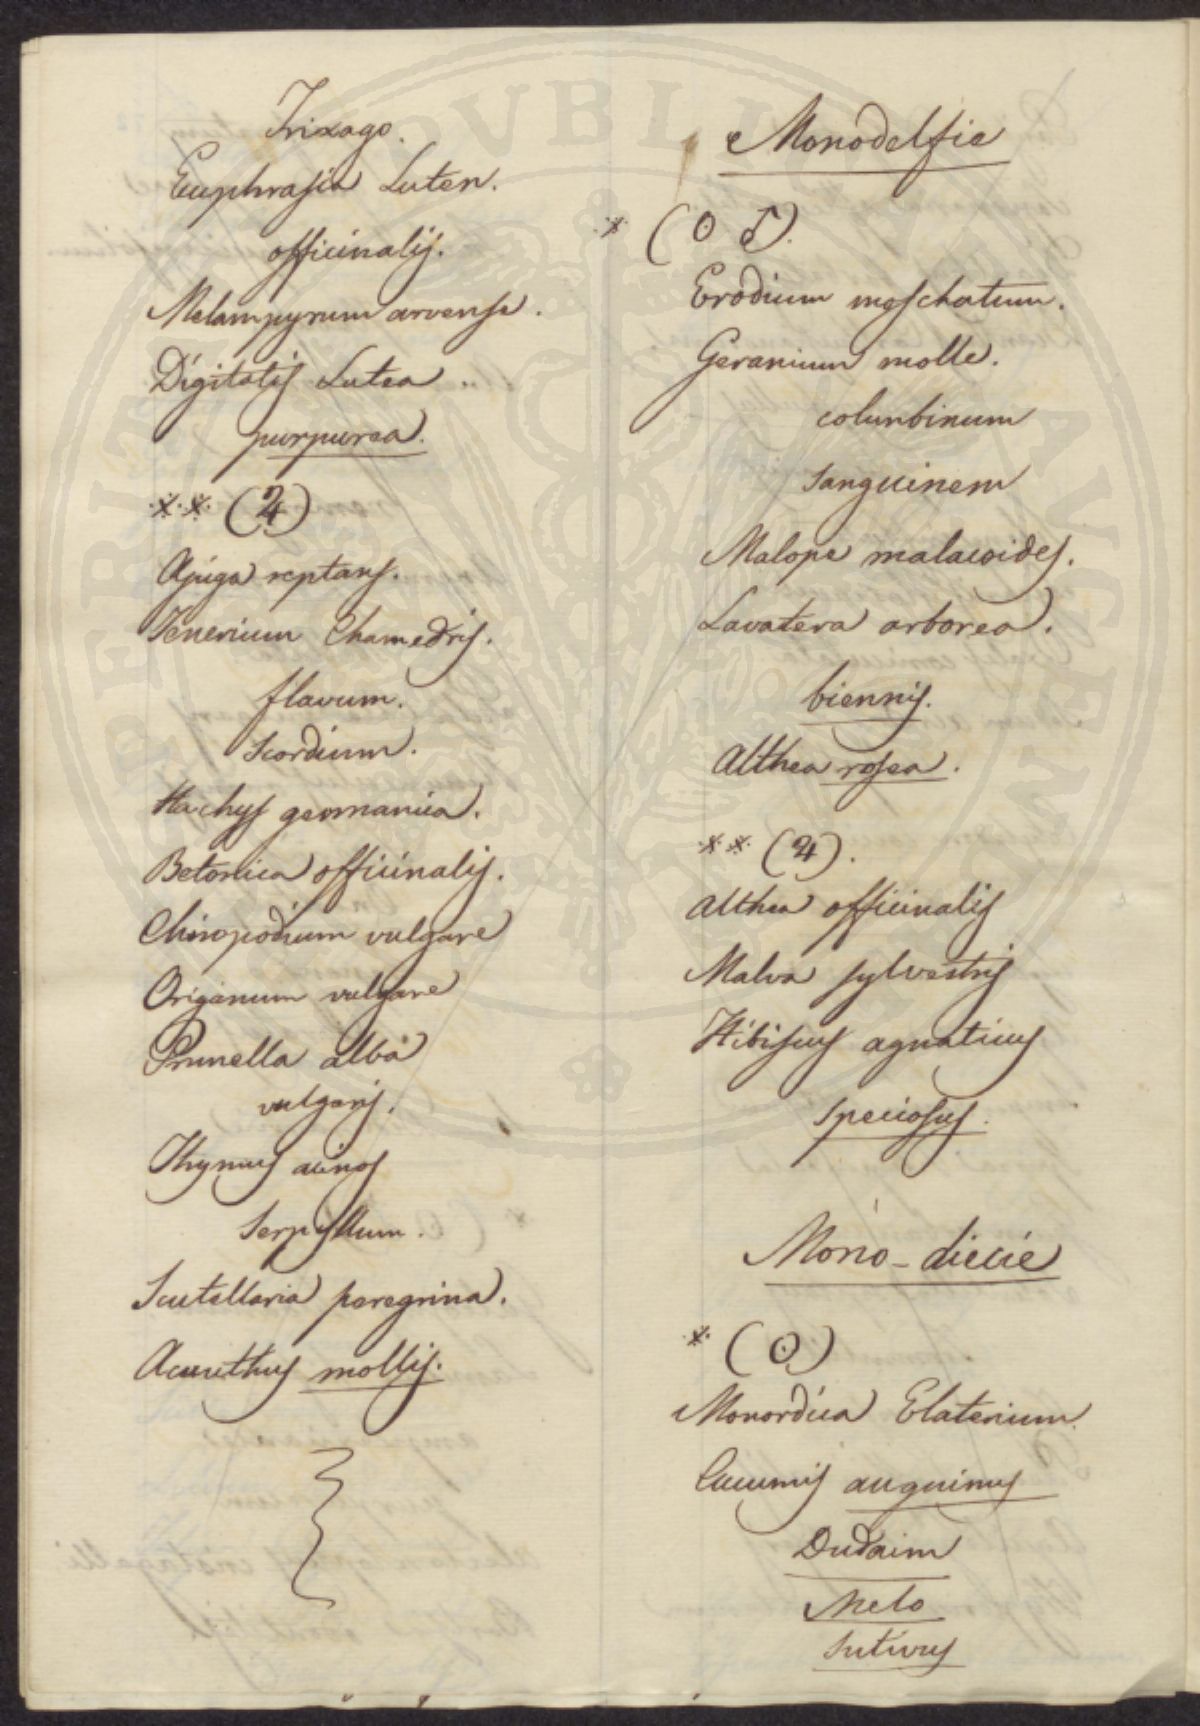 Trixago.
Euphrasia Luten.
officinalis.
Melampyrum arvense.
Digitalis Lutea
purpurea.
** (♃)
Ajuga reptans.
Teucrium Chamedris.
flavum.
Scordium.
Stachys germanica.
Betonica officinalis.
Chinopodium vulgare
Origanum vulgare
Prunella alba
vulgaris.
Thymus acinos
Serpyllum.
Scutellaria peregrina.
Acanthus mollis.
Monodelfie
* (O ♂).
Erodium moschatum.
Geranium molle.
columbinum
Sanguinem
Malope malacoides.
Lavatera arborea.
biennis.
Althea rosea.
** (♃).
Althea officinalis
Malva sylvestris
Hibiscus aquaticus
Speciosus.
Mono-diecie
* (ʘ)
Monordica Elaterium.
Cucumis anguinus
Dudaim
Melo
Sativus